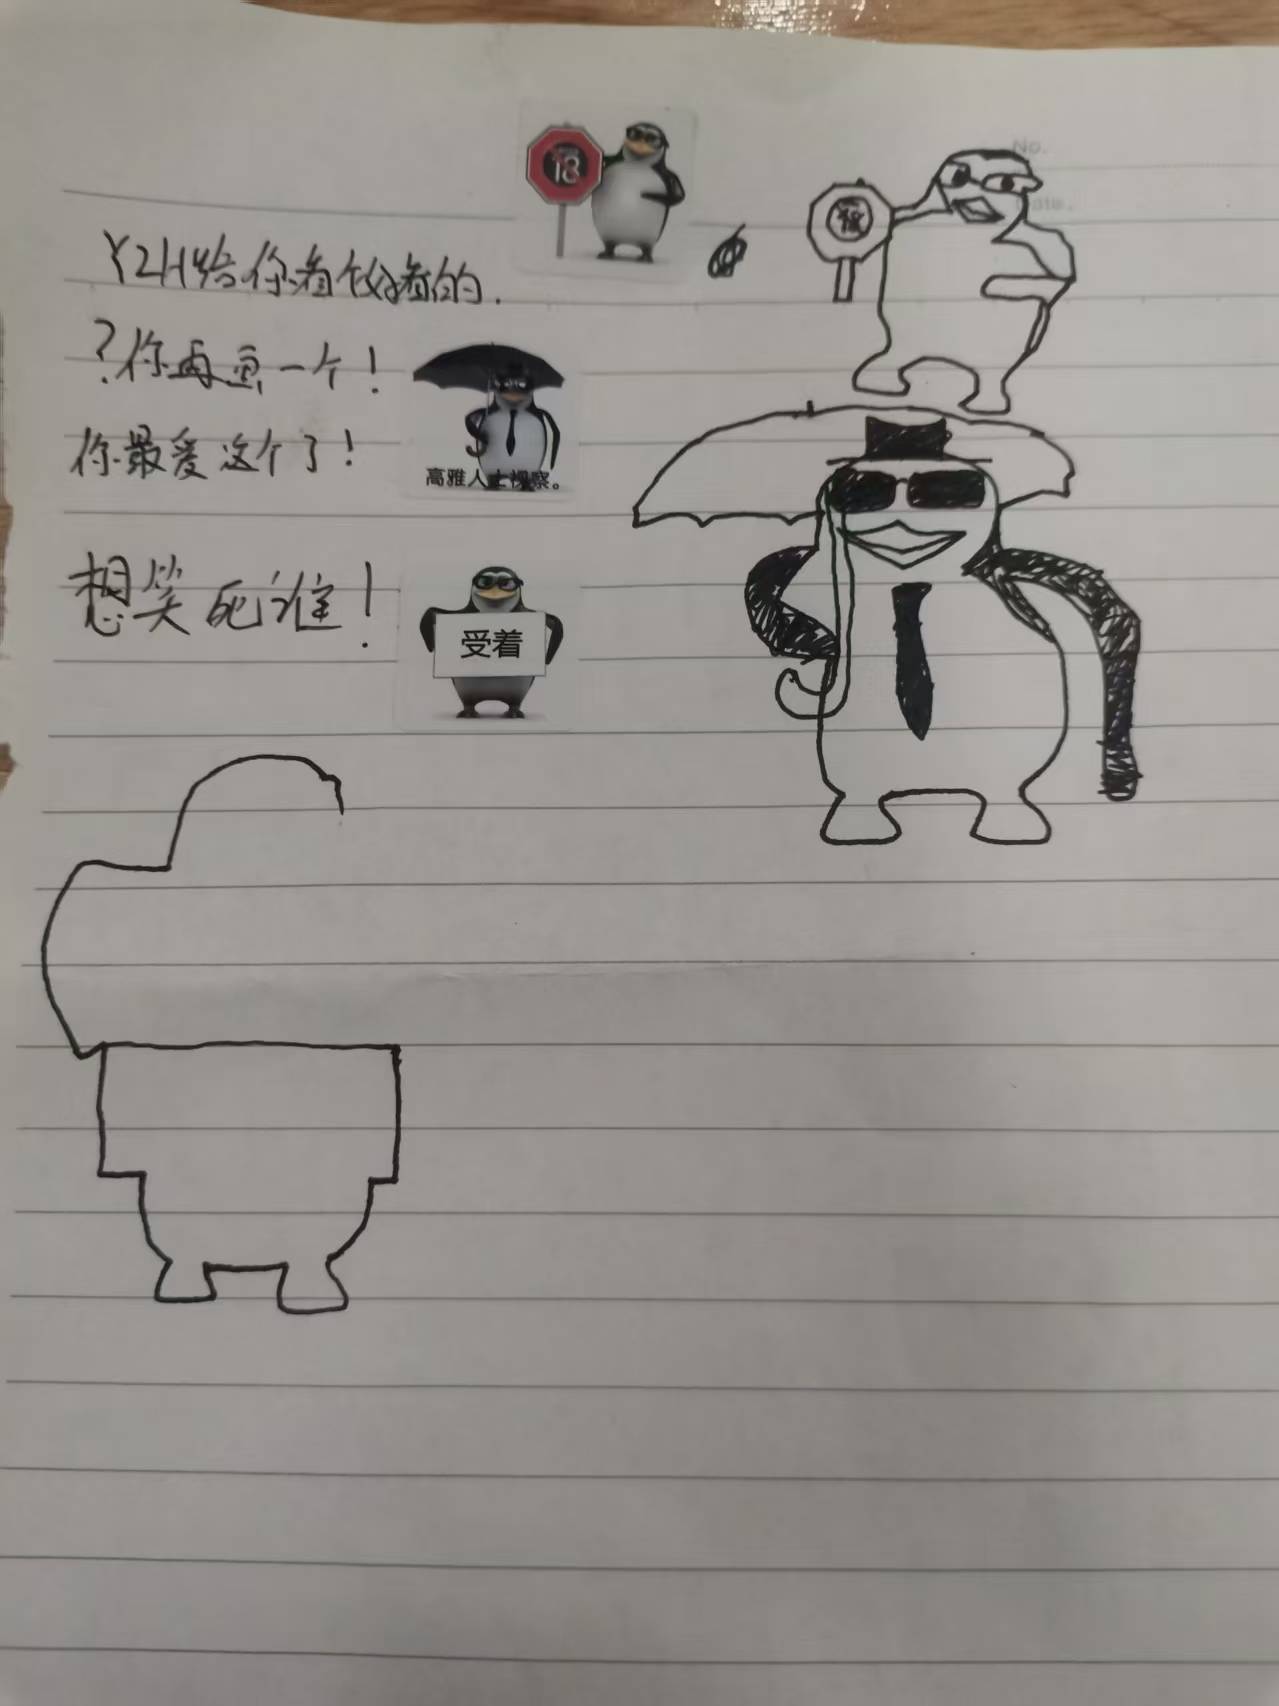 18
No.
Date.
18
YZH给你看个好看的.
?你再画一个!
你最爱这个了!
高雅人士视察。
想笑死谁!
受着